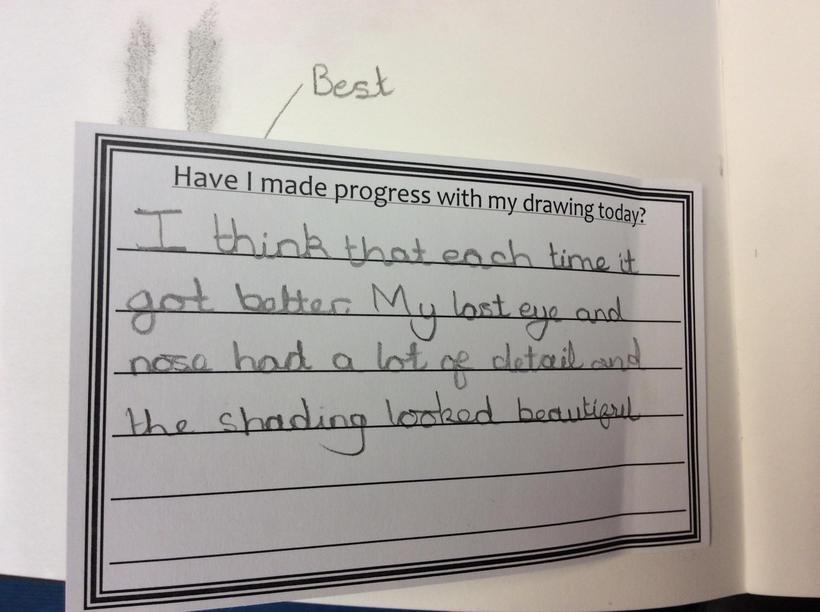 Best
Have I made progress with my drawing today?
I think that each time it
got better. My last eye and
nose had a lot of detail and
the shading looked beautiful